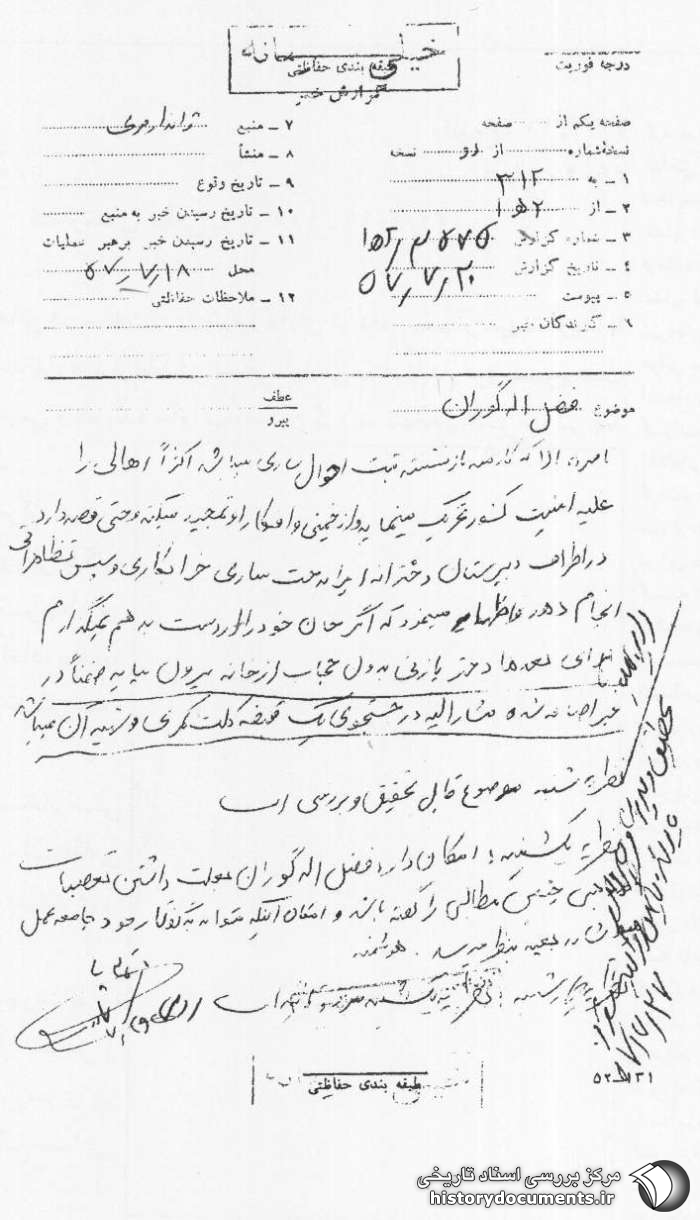 خیلی محرمانه
طبقه بندی حفاظتی
گزارش خبر
درجه فوریت
صفحه یکم از صفحه
نسخه شماره از نسخه
۱ – به ۳۱۲
۲ – از
۳ – شماره گزارش
۴ – تاریخ گزارش ۵۷٫۷٫۲۰
۵ – پیوست
۶ – گیرندگان خبر
۷ – منبع ژاندارمری
۸ – منشأ
۹ – تاریخ وقوع
۱۰ – تاریخ رسیدن خبر به منبع
۱۱ – تاریخ رسیدن خبر برهبر عملیات
محل ۵۷٫۷٫۱۸
۱۲ – ملاحظات حفاظتی
موضوع فضل اله گوران
عطف
پیرو
کارمند بازنشسته ثبت احوال ساری میباشد اکثراً اهالی را
علیه امنیت کشور تحریک مینماید و از خمینی و افکار او تمجید میکند و حتی قصد دارد
در اطراف دبیرستان دخترانه ایراندخت ساری خرابکاری و سپس تظاهراتی
انجام دهد و اظهار میدارد که اگر جان خود را از دست بدهم نمیگذارم
برای بعدها دختر یا زنی بدون حجاب از خانه بیرون بیاید ضمناً در
خبر اضافه شده مشارالیه در جستجوی یک قبضه کلت کمری و تهیه آن میباشد
نظریه شنبه موضوع قابل تحقیق و بررسی است
نظریه یکشنبه: امکان دارد فضل اله گوران بعلت داشتن تعصبات
مذهبی چنین مطالبی را گفته باشد و امکان اینکه بتواند به گفتار خود جامه عمل
بپوشاند بعید بنظر میرسد. هوشمند
نظریه یکشنبه مورد تائید است
طبقه بندی حفاظتی
مرکز بررسی اسناد تاریخی
historydocuments.ir